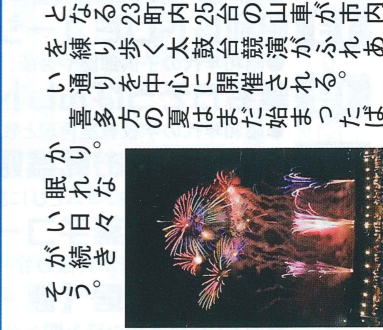 となる23町内25台の山車が市内
を練り歩く太鼓台競演がふれあ
い通りを中心に開催される。
喜多方の夏はまだ始まったば
かり。
眠れな
い日々
が続き
そう。